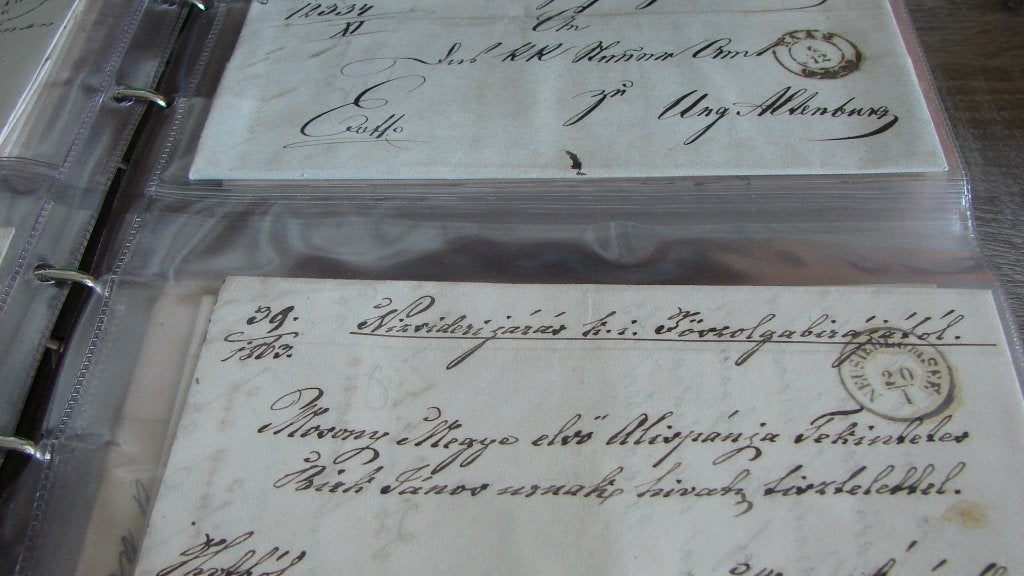 12334
XI
An
Das KK Steuer Amt
RAAB
12
zu Ung Altenburg
Exoffo
39.
1863.
Nizsideri járás k. i. Főszolgabirájától.
NEUSIEDL am SEE
20
1
Mosony Megye első Alispánja Tekintetes
Birk János urnak, hivat, tisztelettel.